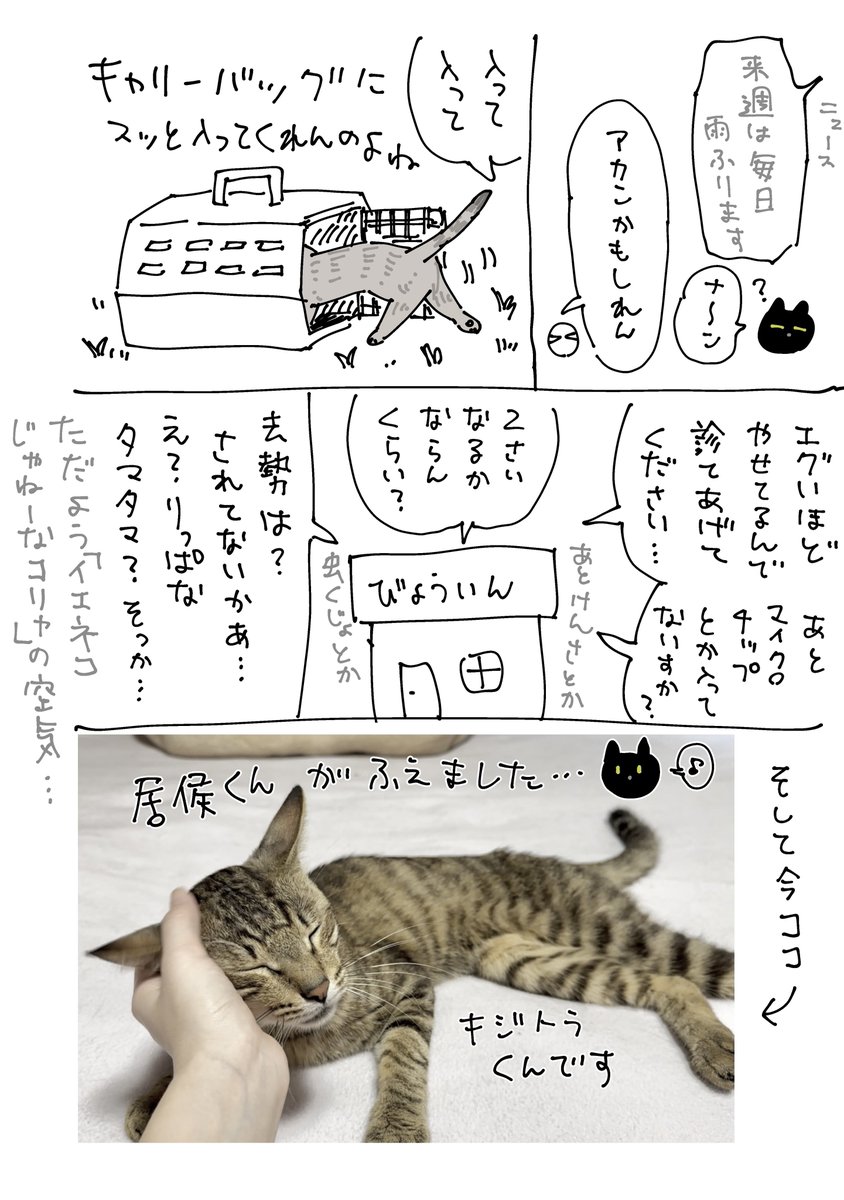 ニュース
来週は毎日
雨ふります
ナ〜ン
?
アカンかもしれん
入って
入って
キャリーバッグに
スッと入ってくれんのよね
エグいほど
やせてるんで
診てあげて
ください…
あと
マイクロ
チップ
とか入って
ないすか?
あとけんさとか
2さい
なるか
ならん
くらい?
びょういん
虫くじょとか
去勢は?
されてないかぁ…
え?りっぱな
タマタマ?そっか…
ただよう「イエネコ
じゃねーなコリャの空気…」
そして今ココ
居候くんがふえました…
♪
キジトラ
くんです